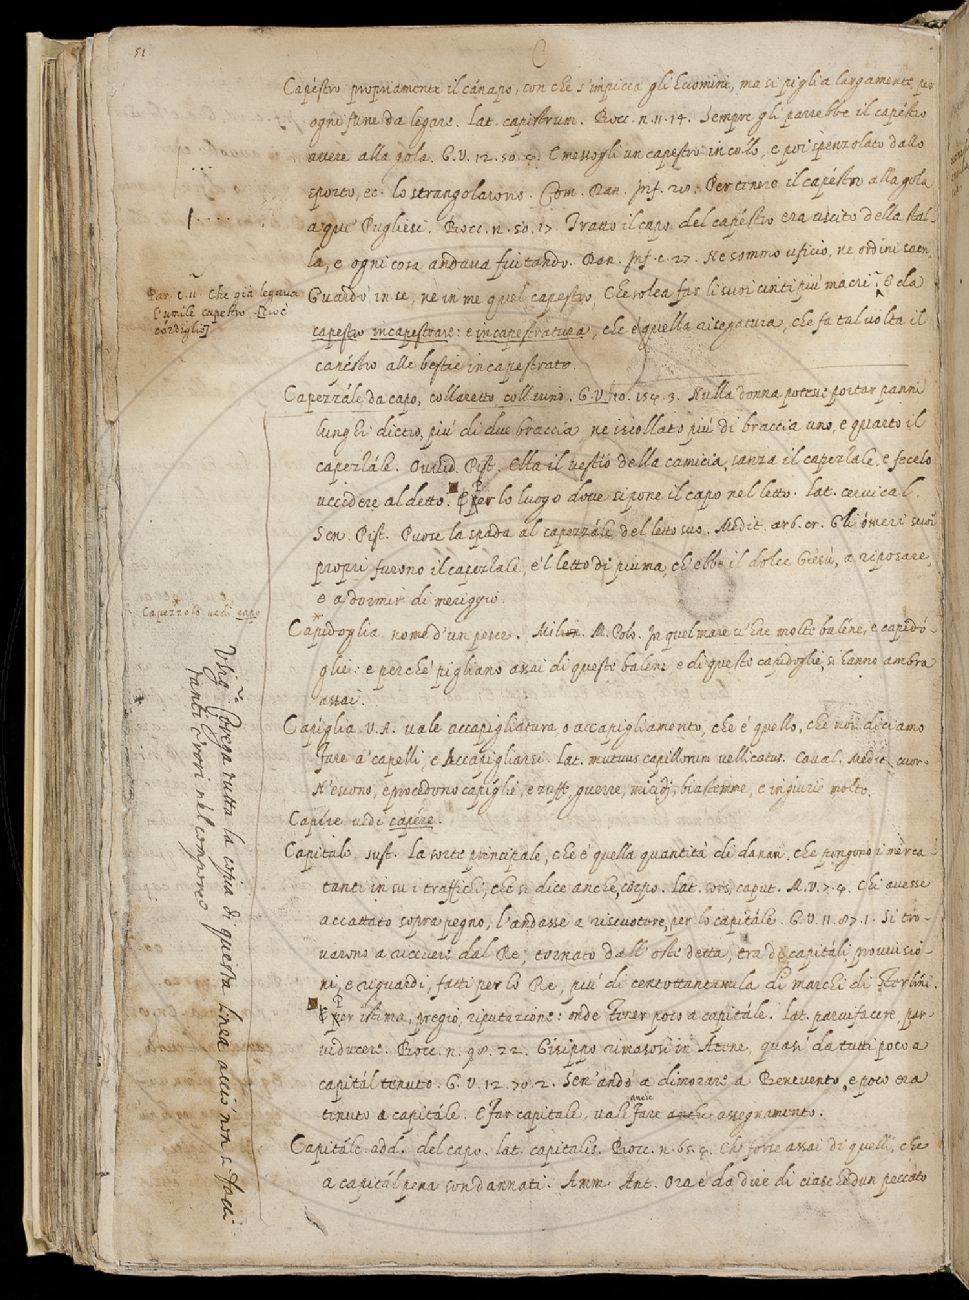 51
C
Capéstro propriamente il cánapo, con che s'impicca gli huomini, ma si piglia largamente per
ogni fune da legare. Lat. capistrum. Bocc. n. 11. 14. Sempre gli parrebbe il capéstro
avere alla gola. G. V. 12. 50. 4. E messogli un capestro in collo, e poi spenzolato dallo
sporto, ec. lo strangolarono. Com. Dan. Inf. 28. Per tenere il capéstro alla gola
a que' Pugliesi. Bocc. n. 50. 17. Tratto il capo del capéstro era uscito della stal-
la, e ogni cosa andava fiutando. Dan. Inf. c. 27. Ne sommo uficio, ne ordini sacri
Par. c. 11. Che già legava
l'umile capestro. [cioè
cordiglio]
Guardò in se, ne in me quel capestro, Che solea far li suoi cinti più macri. E da
capestro incapestrare: e incapestratura, che è quella risegatura, che fa talvolta il
capéstro alle bestie incapestrate.
Capezzále da capo, collaretto, G. V. 10. 154. 3. Nulla donna potesse portar panni
lunghi dietro, più di due braccia, ne iscollato più di braccia uno, e quarto il
capezzále. Ovvid. Pist. Ella il vestío della camicia, sanza il capezzále, e fecelo
uccidere al detto. E per lo luogo dove si pone il capo nel letto. Lat. cervical.
Sen. Pist. Puose la spada al capezzále del letto suo. Medit. arb. cr. Gli ómeri suoi
propri furono il capezzále, e 'l letto di piuma, ch'ebbe il dolce Giesù, a riposare,
e a dormir di meriggio.
Capézzolo vedi capo
Capidoglia nome d'un pesce. Milion. M. Polo. In quel mare v'hae molte baléne, e capidó-
glie: e perchè pigliano assai di queste balene e di queste capidoglie, si hanno ambra
assai.
Capíglia V. A. vale accapigliatura, o accapigliamento, che è quello, che noi diciamo
Fare a' capelli, e Accapigliarsi. Lat. mutuus capillorum vellicatus. Caval. Medic. cuor.
N'escono, e procedono capiglie, e zuffe, guerre, micidj, biastemme, e ingiurie molte.
Capíre vedi capére.
Capitále sust. La sorte principale, che è quella quantità di danari, che pongono i merca-
tanti in su i traffichi, che si dice anche, córpo. Lat. sors, caput. M. V. 7. 4. Chi avesse
accattato sopra pegno, l'andasse a riscuotere, per lo capitále. G. V. 11. 87. 1. Si tro-
varono a ricevere dal Re, tornato dall' oste detta, tra di capitáli, provvisio-
ni, e riguardi, fatti per lo Re, più di centottantamila di marchi di sterlini.
E per istima, pregio, riputazione: onde Tener poco a capitále. Lat. parvifacere, par-
viducere. Bocc. n. 98. 22. Gisippo rimasosi in Atene, quasi da tutti poco a
capitál tenuto. G. V. 12. 70. 2. Sen'andò a dimorare a Benevento, e poco era
tenuto a capitále. E Far capitale, vale anche Fare anche assegnamento.
Capitále add. del capo. Lat. capitalis. Bocc. n. 65. 4. Che forse assai di quelli, che
a capitál pena son dannati. Amm. Ant. Ora è da dire di ciaschedun peccato
V. Sig.ria Corega tutta la copia di questa linea acciò non si facci
tanti errori nel comporre